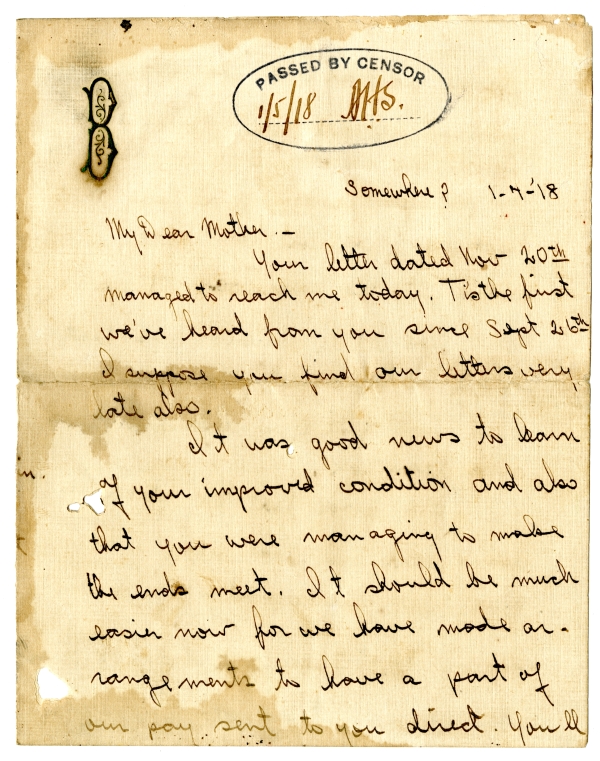 PASSED BY CENSOR
1/5/18 AHS.
Somewhere? 1-7-'18
My Dear Mother.—
Your letter dated Nov 20th
managed to reach me today. T'is the first
we've heard from you since Sept 26th
I suppose you find our letters very
late also.
It was good news to learn
of your improved condition and also
that you were managing to make
the ends meet. It should be much
easier now for we have made ar-
rangements to have a part of
our pay sent to you direct. You'll
in.